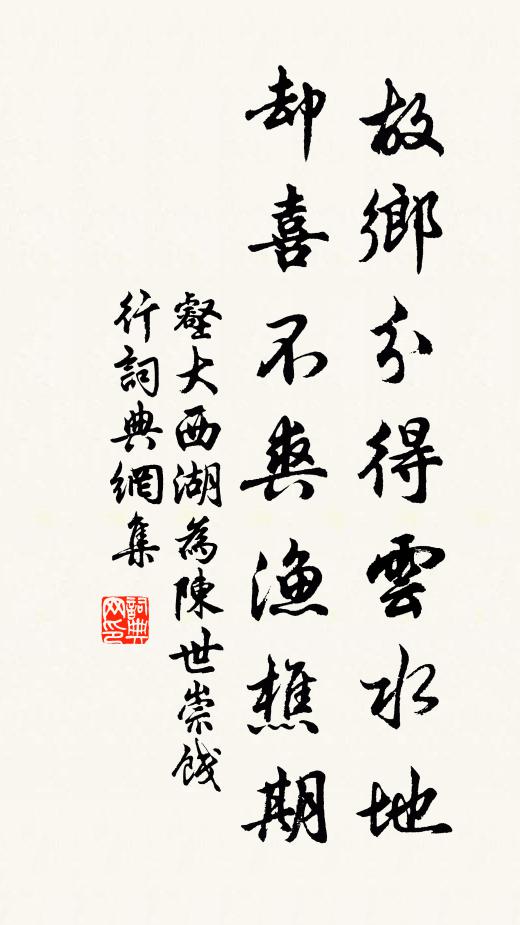 故鄉分得雲水地
却喜不爽漁樵期
壑大西湖為陳世崇餞
行詞典網集
詞典
网印